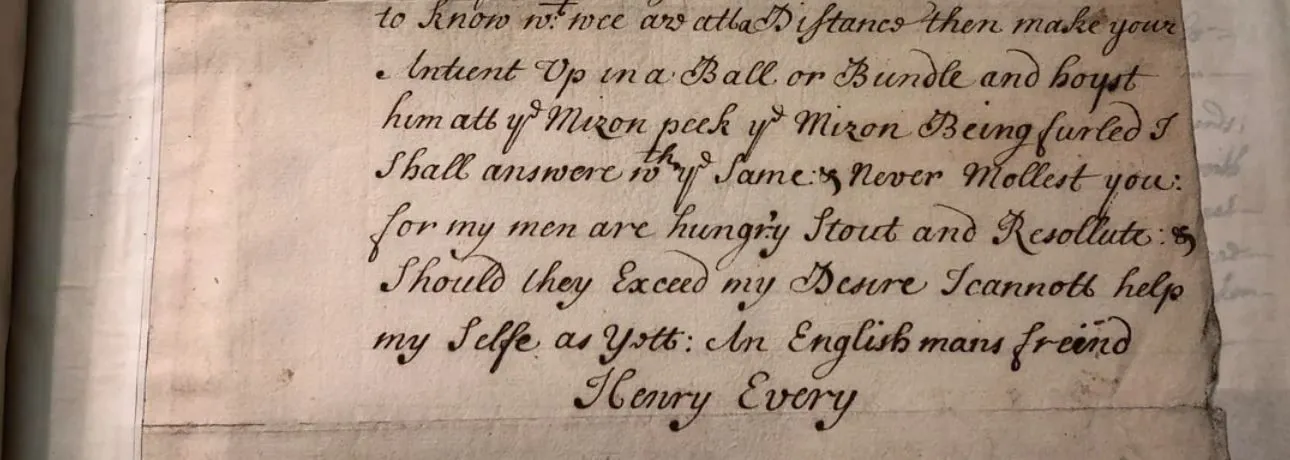 to know wt: wee are atta Distance then make your
Antient Up in a Ball or Bundle and hoyst
him att ye Mizon peek ye Mizon Being furled I
Shall answere wth ye Same: & Never Mollest you:
for my men are hungry Stout and Resollute: &
Should they Exceed my Desire I cannott help
my Selfe as Yett: An English mans freind
Henry Every